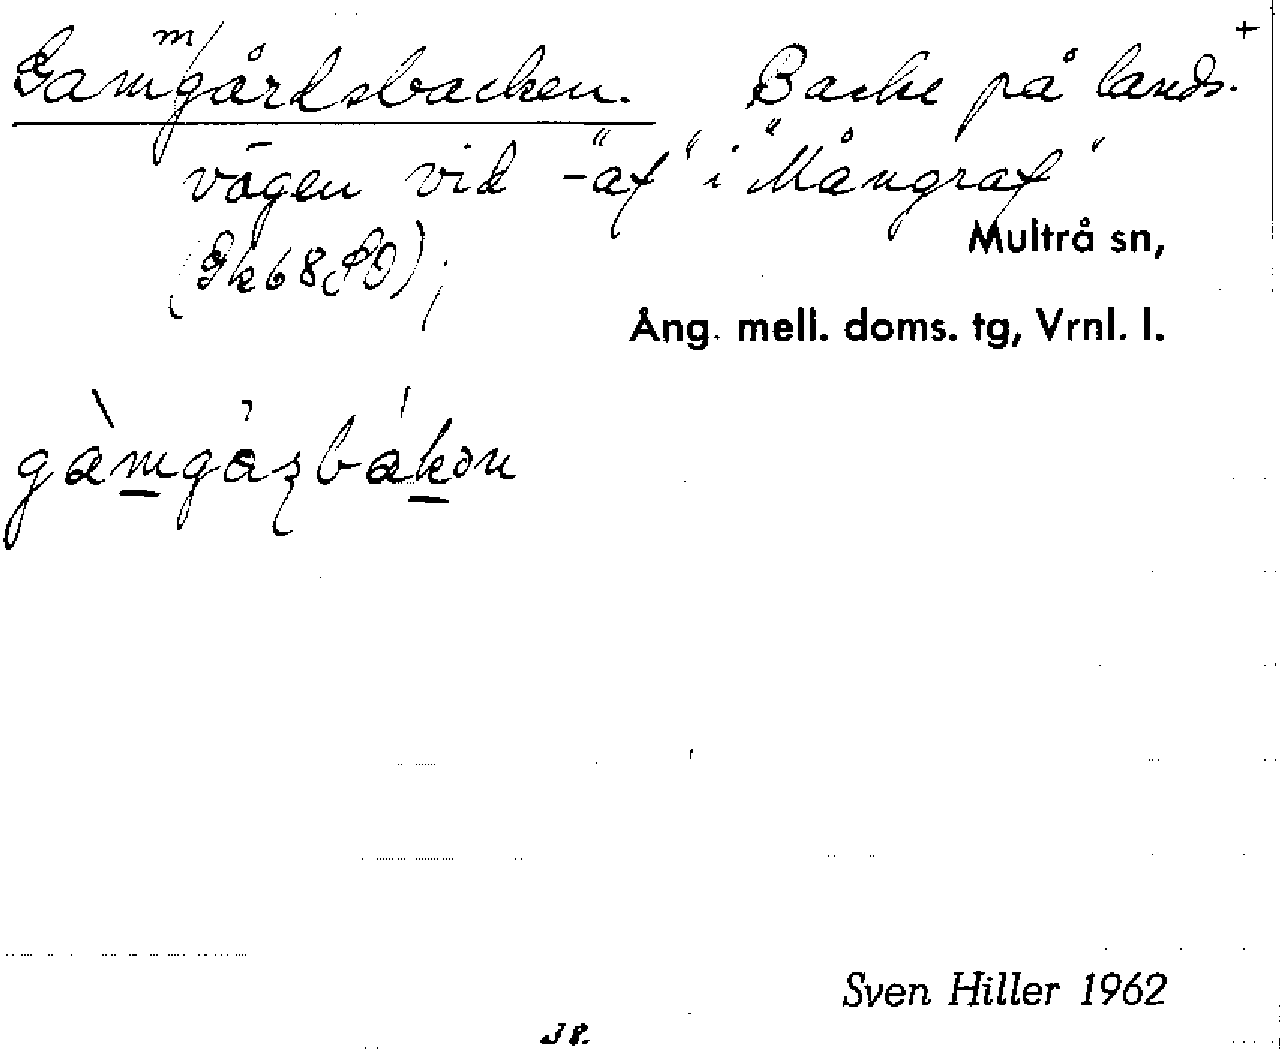 +
Gammgårdsbacken. Backe på lands-
vägen vid -"af" i "Mångraf"
Multrå sn,
Ång. mell. doms. tg, Vrnl. l.
gàmgázbákən
Sven Hiller 1962